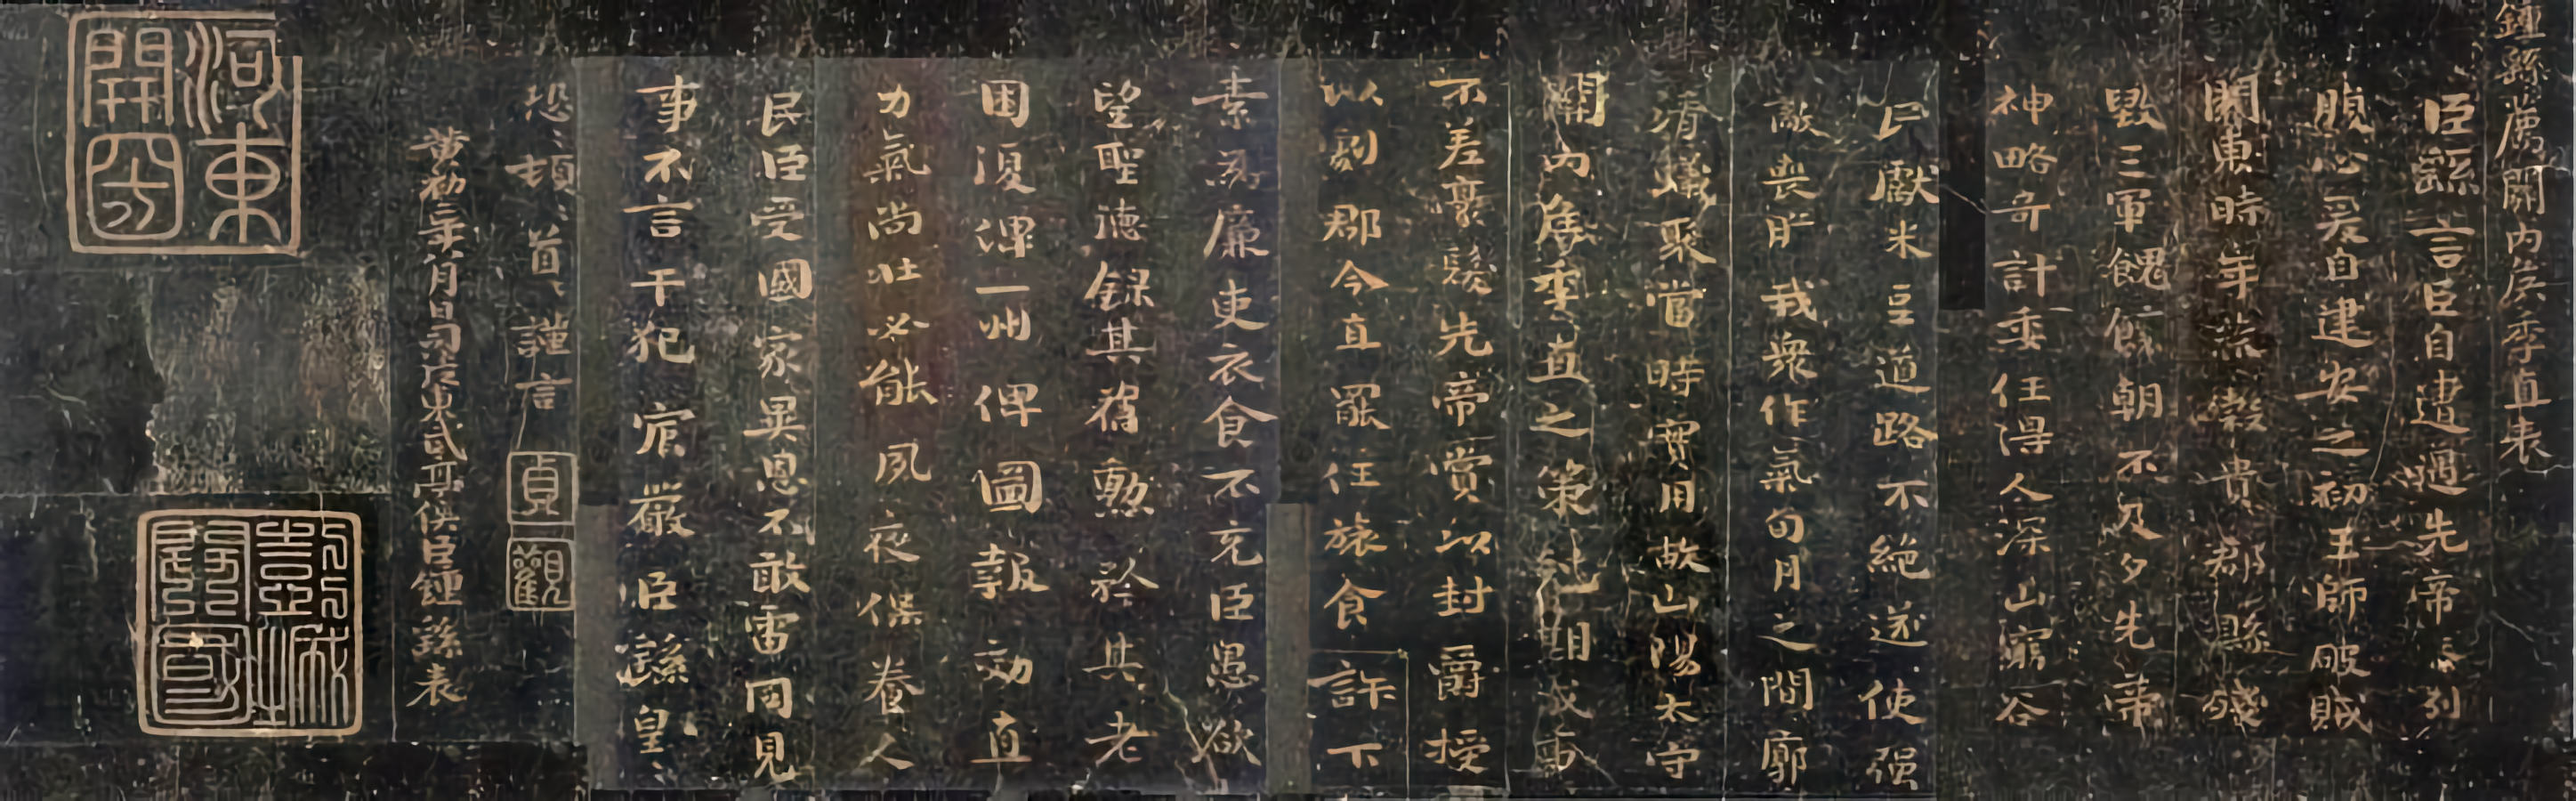 鍾繇薦關內侯季直表
臣繇言臣自遭遇先帝忝列
腹心爰自建安之初王師破賊
關東時年荒穀貴郡縣殘
毀三軍餽饟朝不及夕先帝
神略奇計委任得人深山窮谷
民獻米豆道路不絕遂使強
敵喪膽我衆作氣旬月之間廓
清蟻聚當時實用故山陽太守
關內侯季直之策剋期成事
不差豪髮先帝賞以封爵授
以劇郡今直罷任旅食許下
素為廉吏衣食不充臣愚欲
望聖德錄其舊勳矜其老
困復俾一州俾圖報効直
力氣尚壯必能夙夜保養人
民臣受國家異恩不敢雷同見
事不言干犯宸嚴臣繇皇ミ
恐ミ頓ミ首ミ謹言
貞
觀
黃初二年八月日司徒東武亭侯臣鍾繇表
河東
開國